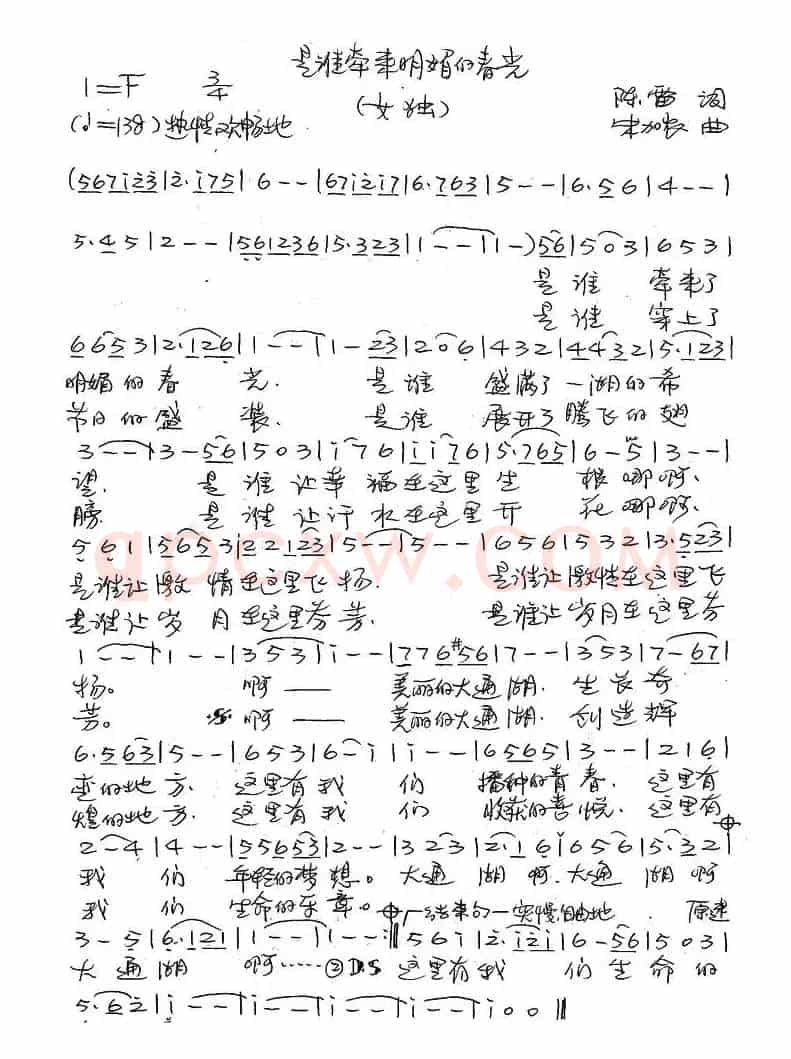 是谁牵来明媚的春光
1=F 3/4
(女独)
陈雷 词
(♩=138) 热情欢畅地
宋加农 曲
(567i23|2·i75|6--|67i2i7|6·763|5--|6·56|4--|
5·45|2--|561236|5·323|1--|1-)56|503|653|
是谁 牵来了
是谁 穿上了
6653|2·126|1--|1-23|206|432|4432|5·123|
明媚的春 光. 是谁 盛满了一湖的希
节日的盛 装. 是谁 展开了腾飞的翅
3--|3-56|503|i76|ii76|5·765|6-5|3--|
望. 是谁让幸福在这里生 根哪啊.
膀. 是谁让汗水在这里开 花哪啊.
561|5653|22123|5--|5--|656|532|3·523|
是谁让激情在这里飞扬. 是谁让激情在这里飞
是谁让岁月在这里芬芳. 是谁让岁月在这里芬
1--|1--|353|i--|776#56|7--|353|7-67|
扬。 啊—— 美丽的大通湖. 生长奇
芳。 啊—— 美丽的大通湖. 创造辉
6·563|5--|653|6-i|i--|6565|3--|216|
迹的地方. 这里有我 们 播种的青春. 这里有
煌的地方. 这里有我 们 收获的喜悦. 这里有
2-4|4--|55653|2--|323|2·16|656|5·32|
我 们 年轻的梦想。大通 湖啊.大通湖啊
我 们 生命的乐章。 结束句 突慢自由地 原速
3-5|6·121|1--|1--‖56i|2·i2i|6-56|503|
大通湖 啊……② D.S 这里有我 们生命的
5·62|i--|i--|i--|i--|i00‖